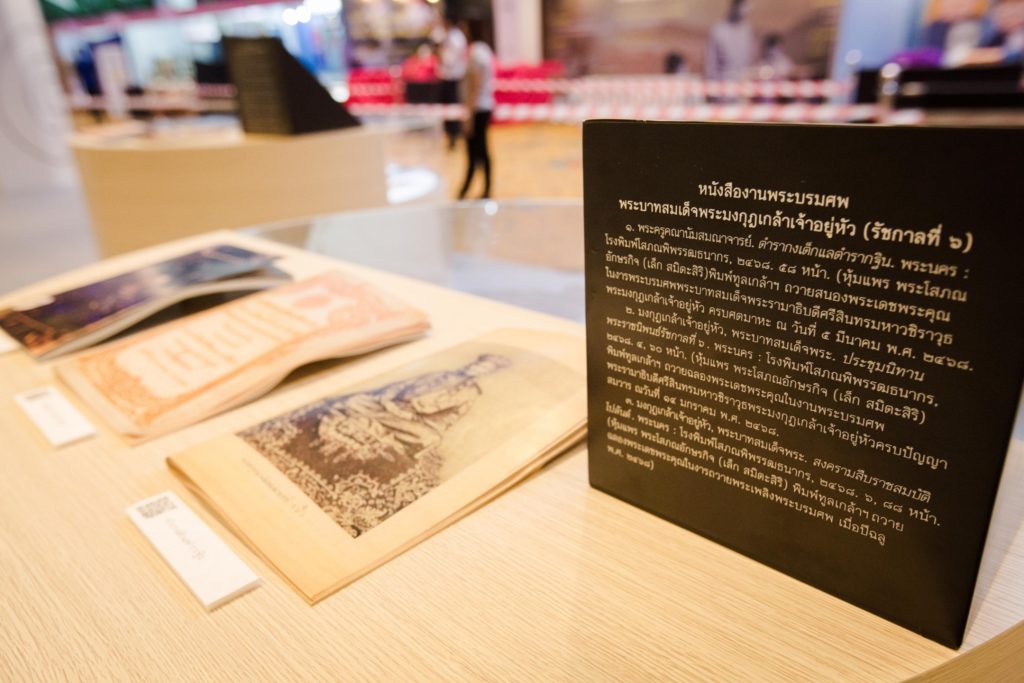 หนังสืองานพระบรมศพ
พระบาทสมเด็จพระมงกุฎเกล้าเจ้าอยู่หัว (รัชกาลที่ ๖)
๑. พระครูคณานัมสมณาจารย์. ตำรากงเต็กแลตำรากฐิน. พระนคร :
โรงพิมพ์โสภณพิพรรฒธนากร, ๒๔๖๘. ๕๘ หน้า. (หุ้มแพร พระโสภณ
อักษรกิจ (เล็ก สมิตะสิริ)พิมพ์ทูลเกล้าฯ ถวายสนองพระเดชพระคุณ
ในงานพระบรมศพพระบาทสมเด็จพระรามาธิบดีศรีสินทรมหาวชิราวุธ
พระมงกุฎเกล้าเจ้าอยู่หัว ครบศตมาหะ ณ วันที่ ๕ มีนาคม พ.ศ. ๒๔๖๘.
๒. มงกุฎเกล้าเจ้าอยู่หัว, พระบาทสมเด็จพระ. ประชุมนิทาน
พระราชนิพนธ์รัชกาลที่ ๖. พระนคร : โรงพิมพ์โสภณพิพรรฒธนากร,
๒๔๖๘. ๔, ๖๐ หน้า. (หุ้มแพร พระโสภณอักษรกิจ (เล็ก สมิตะสิริ)
พิมพ์ทูลเกล้าฯ ถวายฉลองพระเดชพระคุณในงานพระบรมศพ
พระรามาธิบดีศรีสินทรมหาวชิราวุธพระมงกุฎเกล้าเจ้าอยู่หัวครบปัญญา
สมวาร ณวันที่ ๑๔ มกราคม พ.ศ. ๒๔๖๘.
๓. มงกุฎเกล้าเจ้าอยู่หัว, พระบาทสมเด็จพระ. สงครามสืบราชสมบัติ
โปลันด์. พระนคร : โรงพิมพ์โสภณพิพรรฒธนากร, ๒๔๖๘. ๖, ๘๘ หน้า.
(หุ้มแพร พระโสภณอักษรกิจ (เล็ก สมิตะสิริ) พิมพ์ทูลเกล้าฯ ถวาย
ฉลองพระเดชพระคุณในงารถวายพระเพลิงพระบรมศพ เมื่อปีฉลู
พ.ศ. ๒๔๖๘)